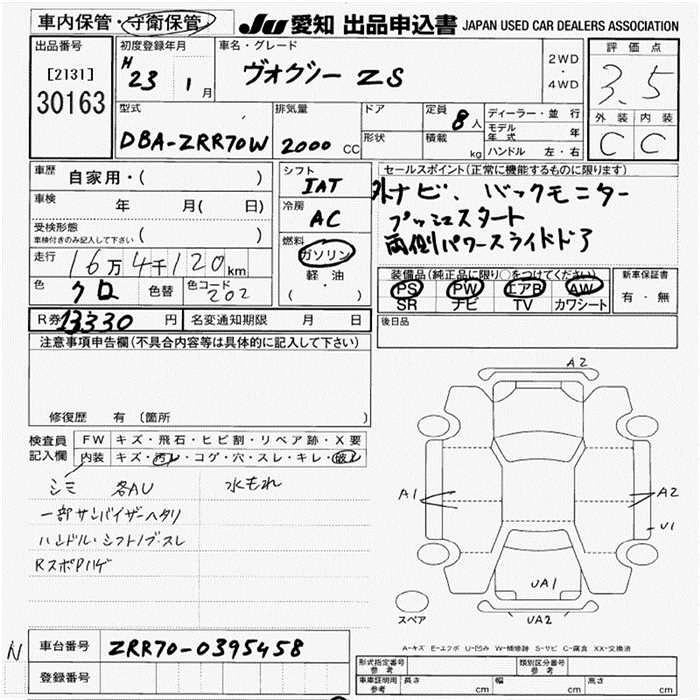 車内保管・守衛保管
JU 愛知 出品申込書 JAPAN USED CAR DEALERS ASSOCIATION
出品番号
[2131]
30163
初度登録年月
H 23 1月
車名・グレード
ヴォグシー ZS
2WD
・
4WD
評価点
3.5
外装 内装
C C
型式
DBA-ZRR70W
排気量
2000 CC
ドア
形状
定員
8人
積載
kg
ディーラー・並行
モデル年式 年
ハンドル 左・右
車歴 自家用・( )
車検 年 月( 日)
受検形態
車検付きのみ記入して下さい ( )
走行 16万4千120km
色 クロ 色替 色コード 202
シフト
IAT
冷房
AC
燃料
ガソリン
軽油
( ・ )
セールスポイント(正常に機能するものに限ります)
外ナビ、バックモニター
プッシュスタート
両側パワースライドドア
装備品(純正品に限り○をつけてください)
PS PW エアB AW
SR ナビ TV カワシート
新車保証書
有・無
R券 13330 円 名変通知期限 月 日
後日品
注意事項申告欄(不具合内容等は具体的に記入して下さい)
修復歴 有 (箇所 )
検査員
記入欄
FW キズ・飛石・ヒビ割・リペア跡・X要
内装 キズ・汚レ・コゲ・穴・スレ・キレ・破レ
シミ 各AU 水もれ
一部サンバイザーヘタリ
ハンドル・シフトノブ・スレ
RスポPハゲ
A2
A1
A2
U1
UA1
UA2
スペア
A-キズ E-エクボ U-凹み W-補修跡 S-サビ C-腐食 XX-交換済
N
車台番号 ZRR70-0395458
登録番号
形式指定番号
参考
類別区分番号
参考
車庫証明用
参考
長さ cm 幅 cm 高さ cm